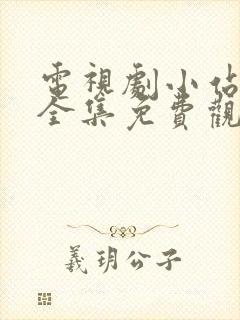 電視劇小佔
全集免費觀
羲玥公子